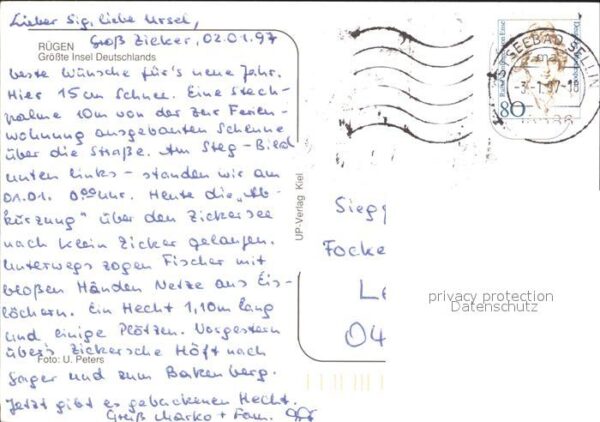 Lieber Sig, liebe Ursel,
Groß Zicker, 02.01.97
RÜGEN
Größte Insel Deutschlands
beste Wünsche für's neue Jahr.
Hier 15cm Schnee. Eine Stech-
palme 10m von der zur Ferien-
wohnung ausgebauten Scheune
über die Straße. Am Steg - Bild
unten links - standen wir am
01.01. 0.00 Uhr. Heute die „Ab-
kürzung" über den Zickersee
nach Klein Zicker gelaufen.
Unterwegs zogen Fischer mit
bloßen Händen Netze aus Eis-
löchern. Ein Hecht 1,10m lang
und einige Plötzen. Vorgestern
über's Zickersche Höft nach
Foto: U. Peters
Gager und zum Bakenberg.
Jetzt gibt es gebackenen Hecht.
Gruß Marko + Fam.
UP-Verlag Kiel
SEEBAD SELLIN
-3.-1.97-18
80
Siegg
Focke
Le
04
privacy protection
Datenschutz